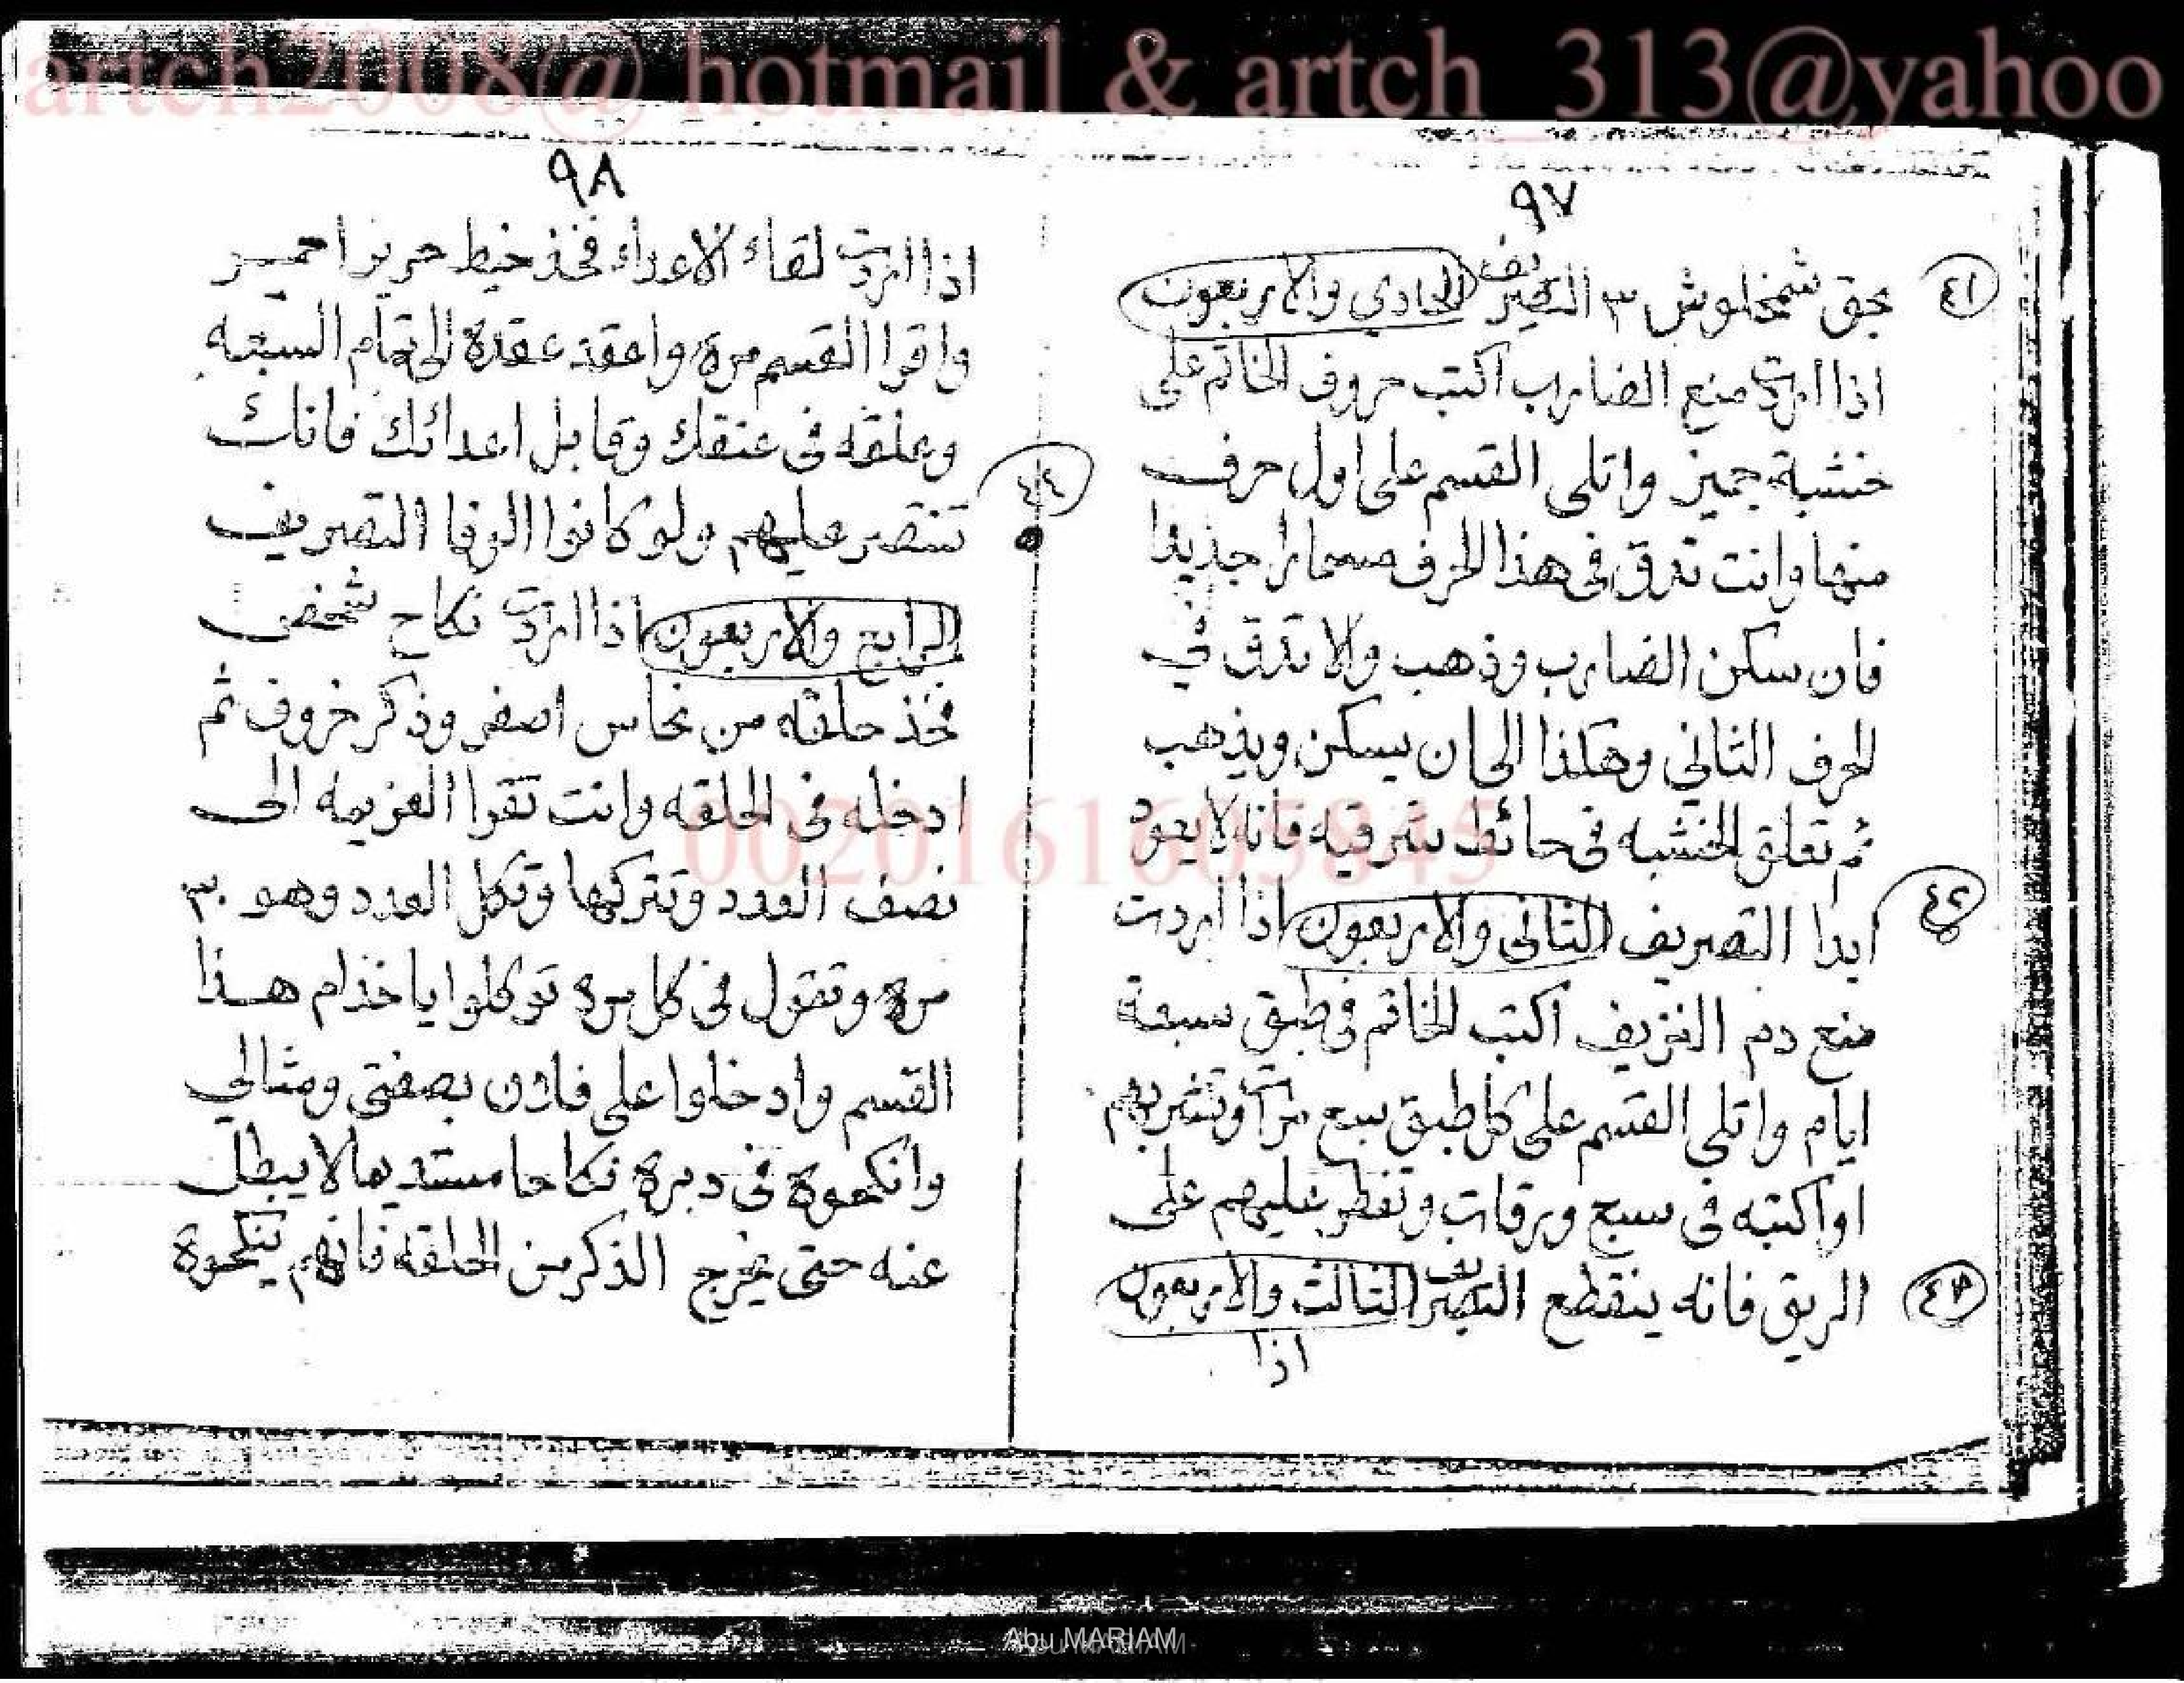 artch2008@ hotmail & artch_313@yahoo
٩٧
٤١
بحق شمخلوش ٣ التصريف الحادي والاربعون
اذا اردت منع الضارب اكتب حروف الخاتم على
خشبة جميز واتلى القسم على اول حرف
منها وانت تدق فى هذا الحرف مسمارا جديدا
فان سكن الضارب وذهب ولا تدق في
الحرف الثاني وهكذا الى ان يسكن ويذهب
ثم تعلق الخشبه فى حائط شرقيه فانه لا يعود
٤٢
ابدا التصريف الثانى والاربعون اذا اردت
منع دم النزيف اكتب الخاتم فى طبق سبعة
ايام واتلى القسم على كل طبق سبع مرات وتشربهم
او اكتبه فى سبع ورقات وتفطر عليهم على
٤٣
الريق فانه ينقطع التصريف الثالث والاربعون
اذا
٩٨
اذا اردت لقاء الاعداء فخذ خيط حرير احمر
واقرا القسم مرة واعقد عقدة الى تمام السبعه
وعلقه فى عنقك وقابل اعدائك فانك
٤٤
تنتصر عليهم ولو كانوا الوفا التصريف
الرابع والاربعون اذا اردت نكاح شخص
فخذ حلقه من نحاس اصفر وذكر خروف ثم
ادخله فى الحلقه وانت تقرا العزيمه الى
نصف العدد وتتركها وتكل العدد وهو ٣٠
مره وتقول فى كل مره توكلوا يا خدام هذا
القسم وادخلوا على فلان بصفتى ومثالي
وانكحوة فى دبرة نكاحا مستديما لا يبطل
عنه حتى يخرج الذكر من الحلقه فانهم ينكحوة
0020161605845
Abu MARIAM